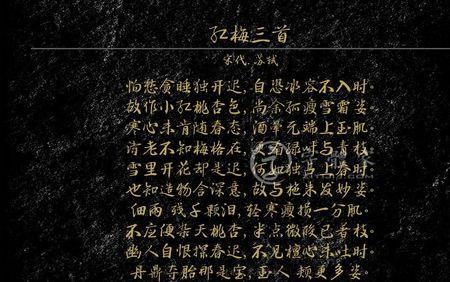 红梅三首
宋代 苏轼
怕愁贪睡独开迟,自恐冰容不入时。
故作小红桃杏色,尚余孤瘦雪霜姿。
寒心未肯随春态,酒晕无端上玉肌。
诗老不知梅格在,更看绿叶与青枝。
雪里开花却是迟,何如独占上春时。
也知造物含深意,故与施朱发妙姿。
细雨 残千颗泪,轻寒瘦损一分肌。
不应便杂夭桃杏,半点微酸已着枝。
幽人自恨探春迟,不见檀心未吐时。
丹鼎夺胎那是宝,玉人 颊更多姿。